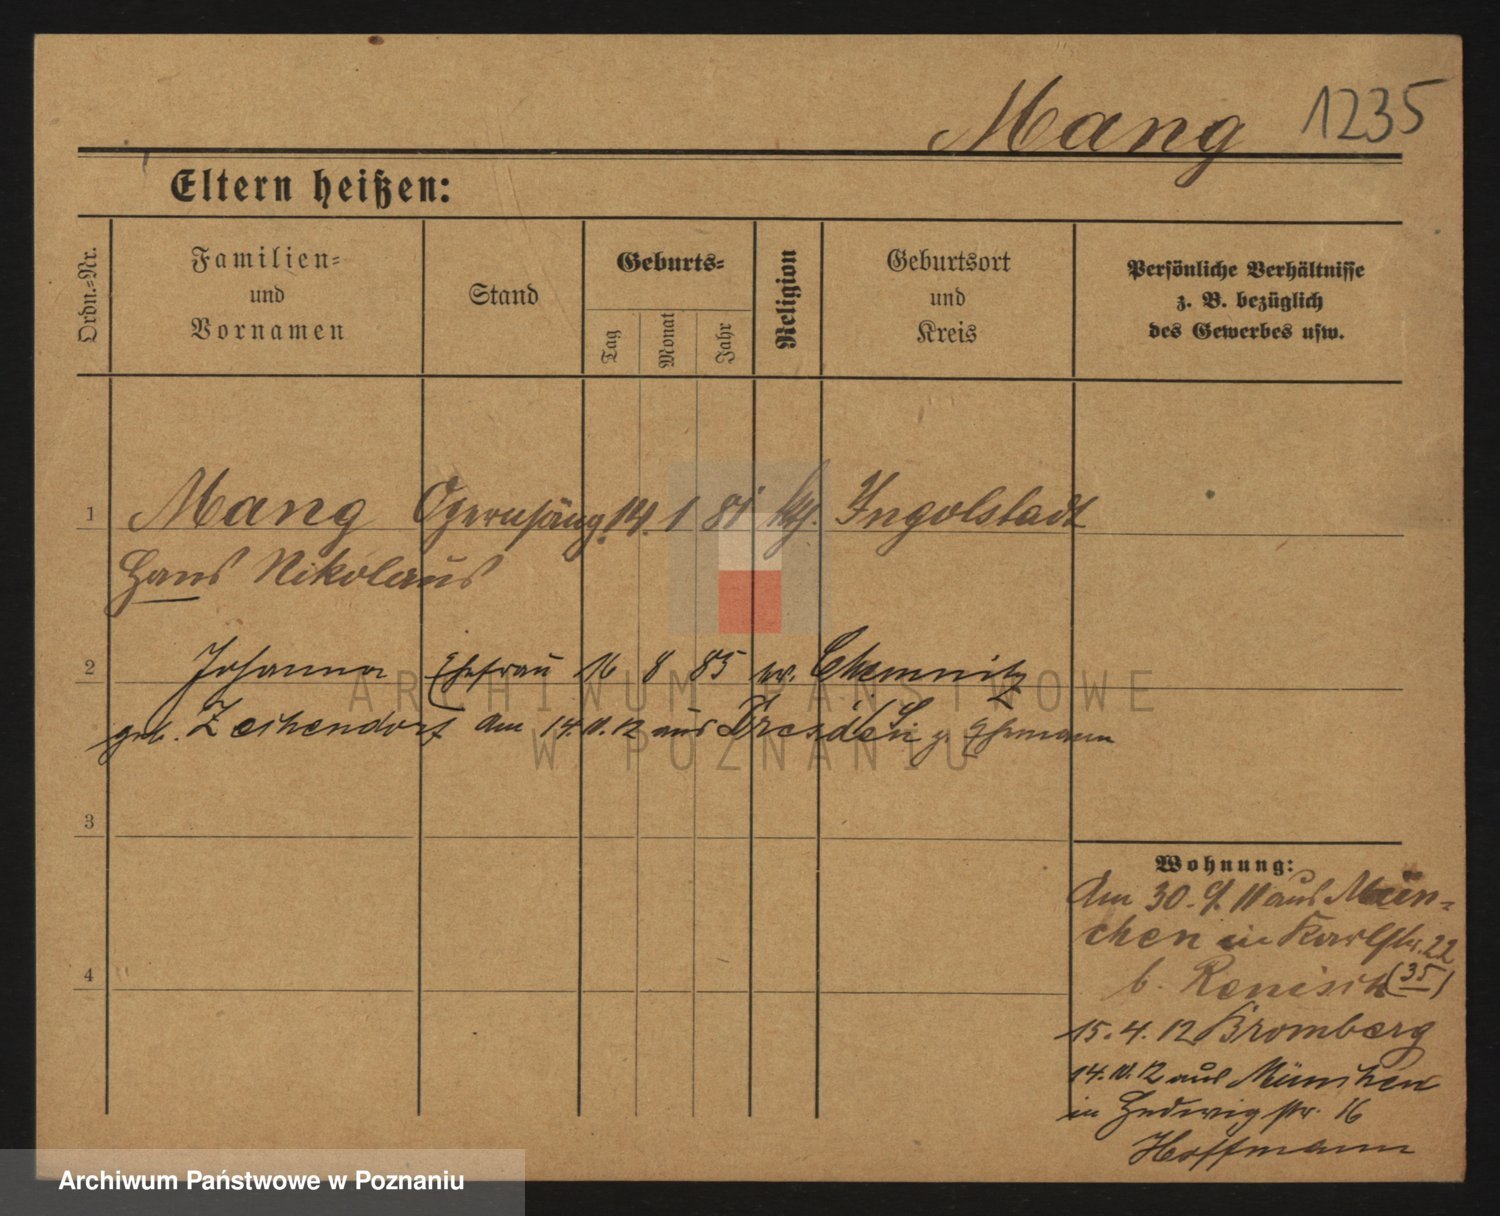 Mang 1235
Eltern heißen:
Ordn.-Nr.
Familien-
und
Vornamen
Stand
Geburts-
Tag
Monat
Jahr
Religion
Geburtsort
und
Kreis
Persönliche Verhältnisse
z. B. bezüglich
des Gewerbes usw.
1 Mang Opernsäng. 14. 1 81 kth. Ingolstadt
Hans Nikolaus
2 Johanna Ehefrau 16 8 85 Chemnitz
geb. Zeichendorf Am 14. 12 aus Dresden z. Ehemann
3
4
Wohnung:
Am 30. 9. 11 aus Mün-
chen in Karlstr. 22
b. Renisch (35)
15. 4. 12 Bromberg
14. 12 aus München
in Hedwigstr. 16
Hoffmann
ARCHIWUM PAŃSTWOWE
W POZNANIU
Archiwum Państwowe w Poznaniu